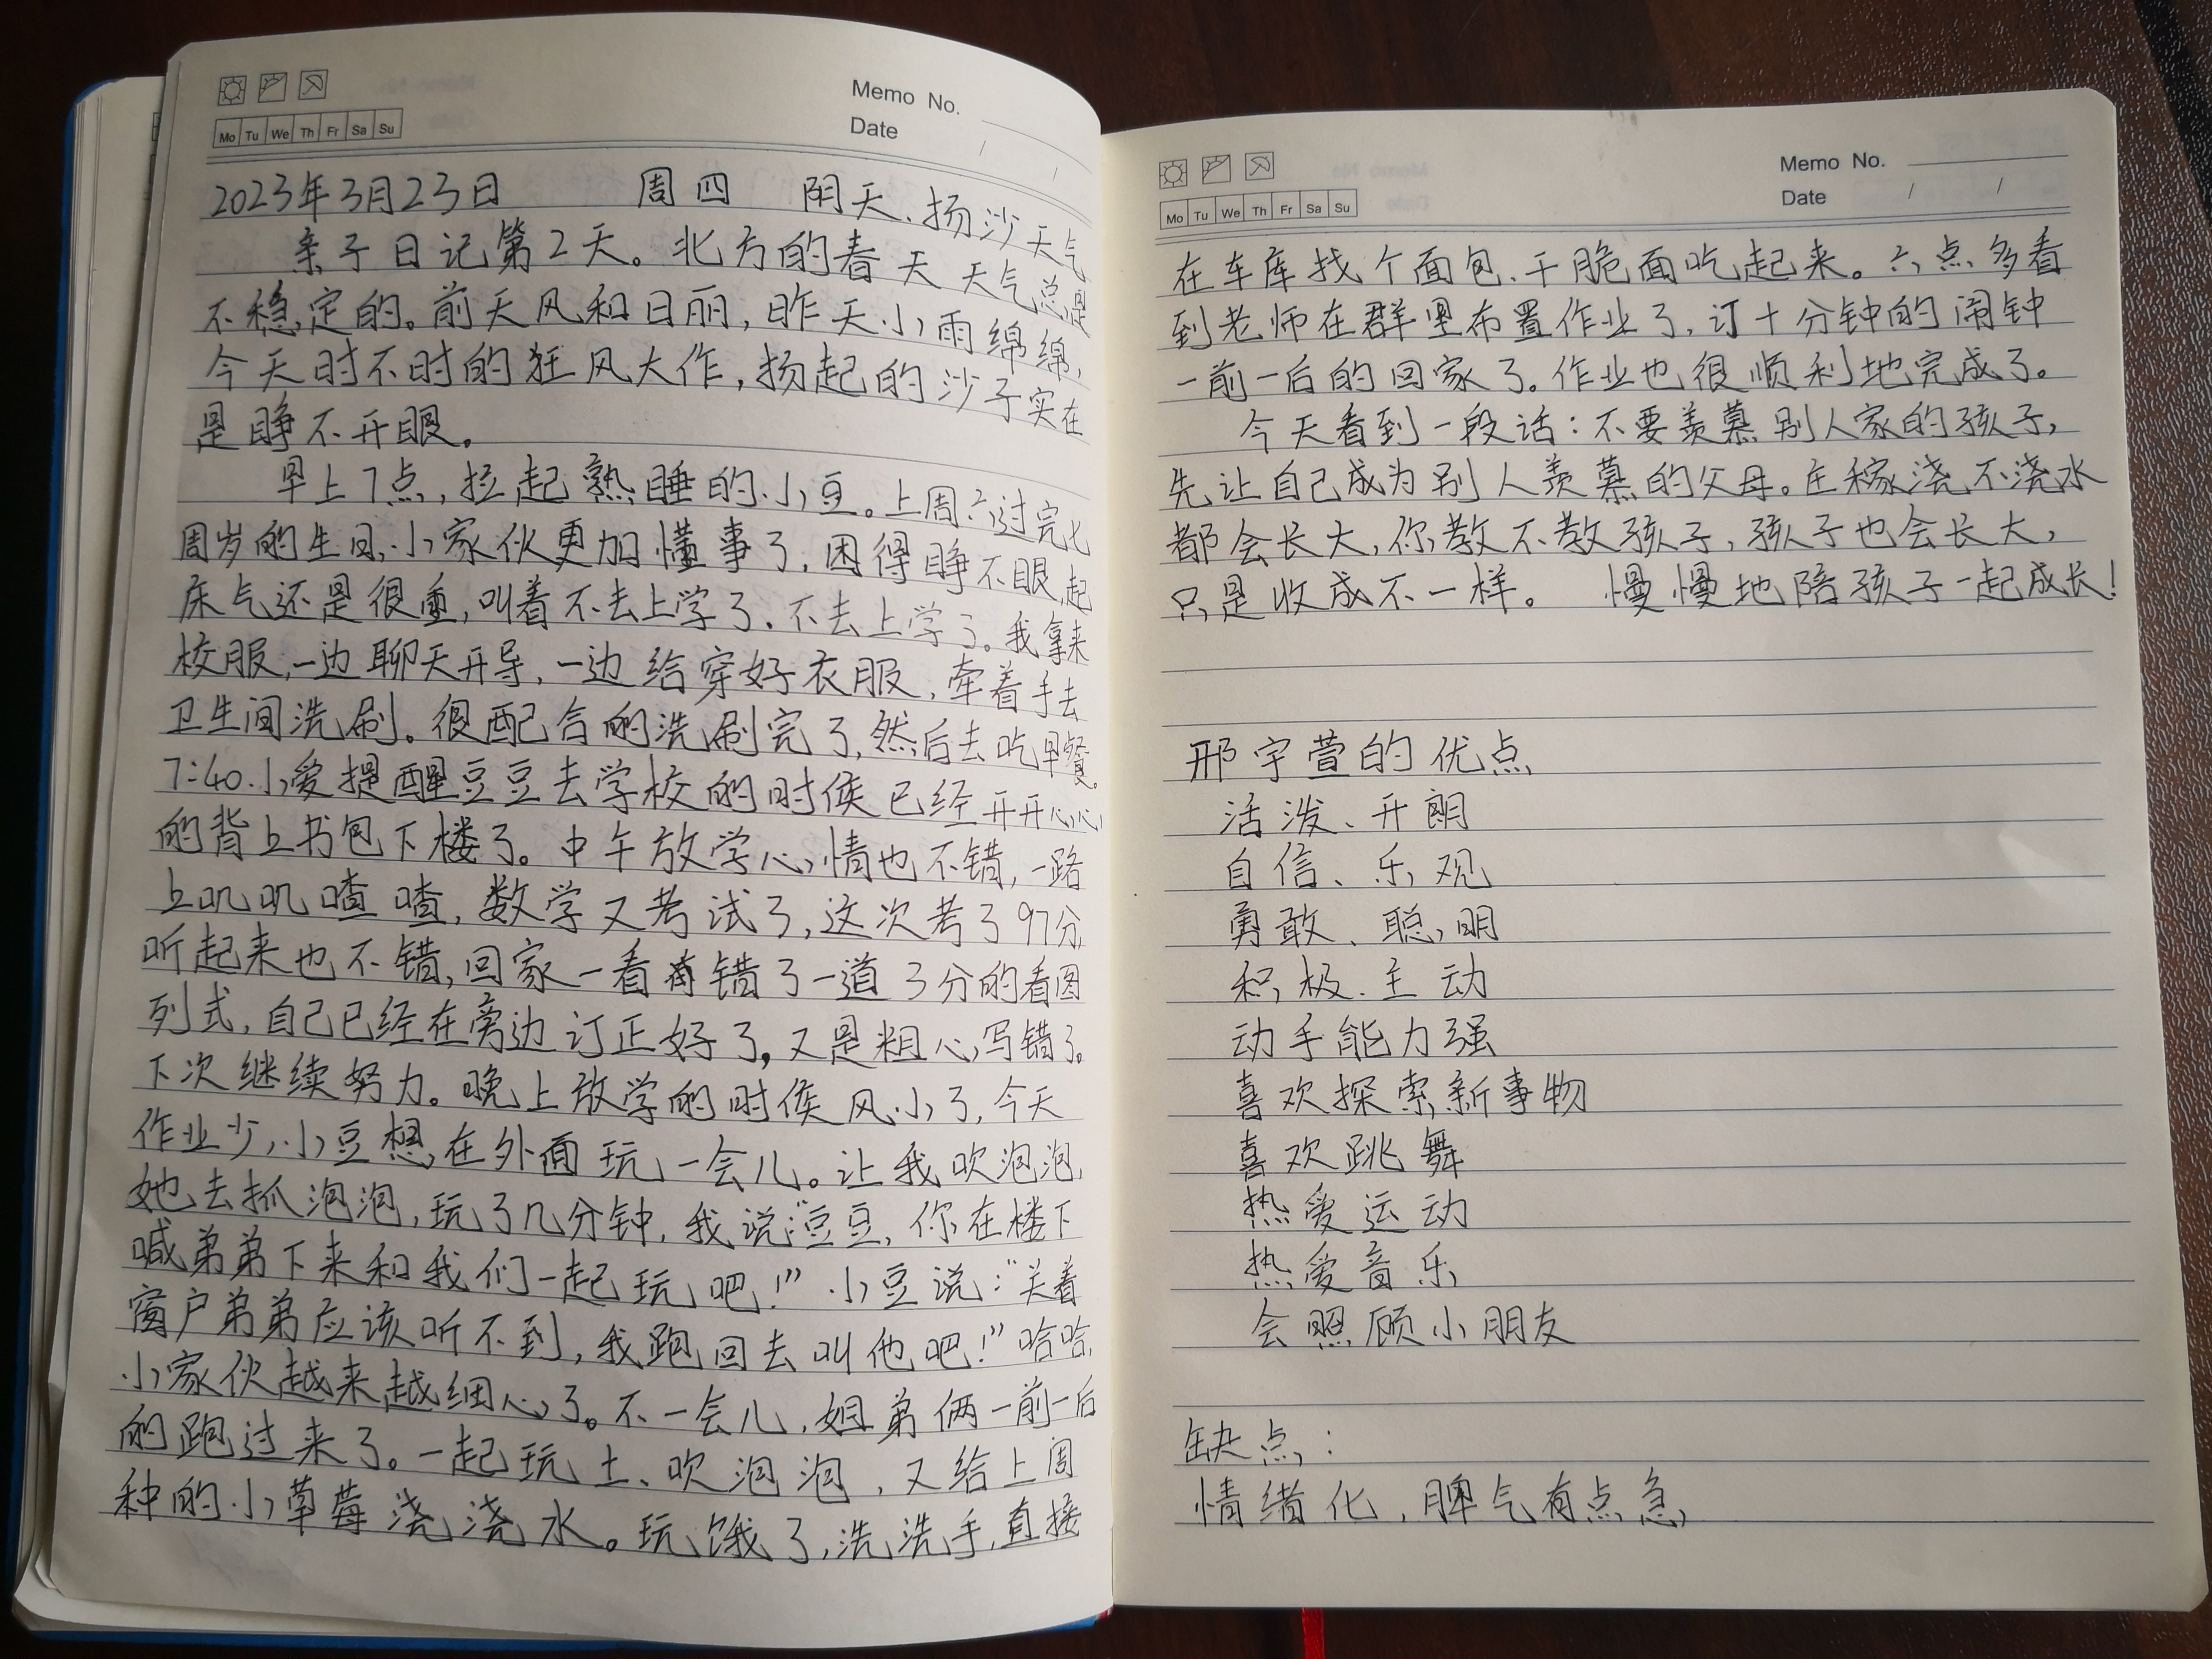 Memo No.
Date / /
Mo Tu We Th Fr Sa Su
2023年3月23日 周四 阴天、扬沙天气
亲子日记第2天。北方的春天天气总是
不稳定的。前天风和日丽,昨天小雨绵绵,
今天时不时的狂风大作,扬起的沙子实在
是睁不开眼。
早上7点,拉起熟睡的小豆。上周六过完七
周岁的生日,小家伙更加懂事了,困得睁不眼,起
床气还是很重,叫着不去上学了,不去上学了。我拿来
校服,一边聊天开导,一边给穿好衣服,牵着手去
卫生间洗刷。很配合的洗刷完了,然后去吃早餐。
7:40.小爱提醒豆豆去学校的时候已经开开心心
的背上书包下楼了。中午放学心情也不错,一路
上叽叽喳喳,数学又考试了,这次考了97分,
听起来也不错,回家一看错了一道3分的看图
列式,自己已经在旁边订正好了,又是粗心写错了。
下次继续努力。晚上放学的时候风小了,今天
作业少,小豆想在外面玩一会儿。让我吹泡泡,
她去抓泡泡,玩了几分钟,我说:“豆豆,你在楼下
喊弟弟下来和我们一起玩吧!”小豆说:“关着
窗户弟弟应该听不到,我跑回去叫他吧!”哈哈,
小家伙越来越细心了。不一会儿,姐弟俩一前一后
的跑过来了。一起玩土、吹泡泡,又给上周
种的小草莓浇浇水。玩饿了,洗洗手,直接
Memo No.
Date / /
Mo Tu We Th Fr Sa Su
在车库找个面包、干脆面吃起来。六点多看
到老师在群里布置作业了,订十分钟的闹钟
一前一后的回家了。作业也很顺利地完成了。
今天看到一段话:不要羡慕别人家的孩子,
先让自己成为别人羡慕的父母。庄稼浇不浇水
都会长大,你教不教孩子,孩子也会长大,
只是收成不一样。 慢慢地陪孩子一起成长!
邢宇萱的优点
活泼、开朗
自信、乐观
勇敢、聪明
积极、主动
动手能力强
喜欢探索新事物
喜欢跳舞
热爱运动
热爱音乐
会照顾小朋友
缺点:
情绪化,脾气有点急